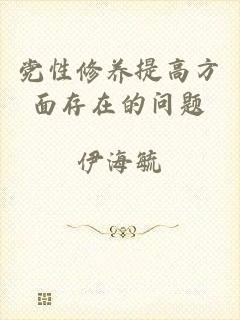 党性修养提高方
面存在的问题
伊海毓